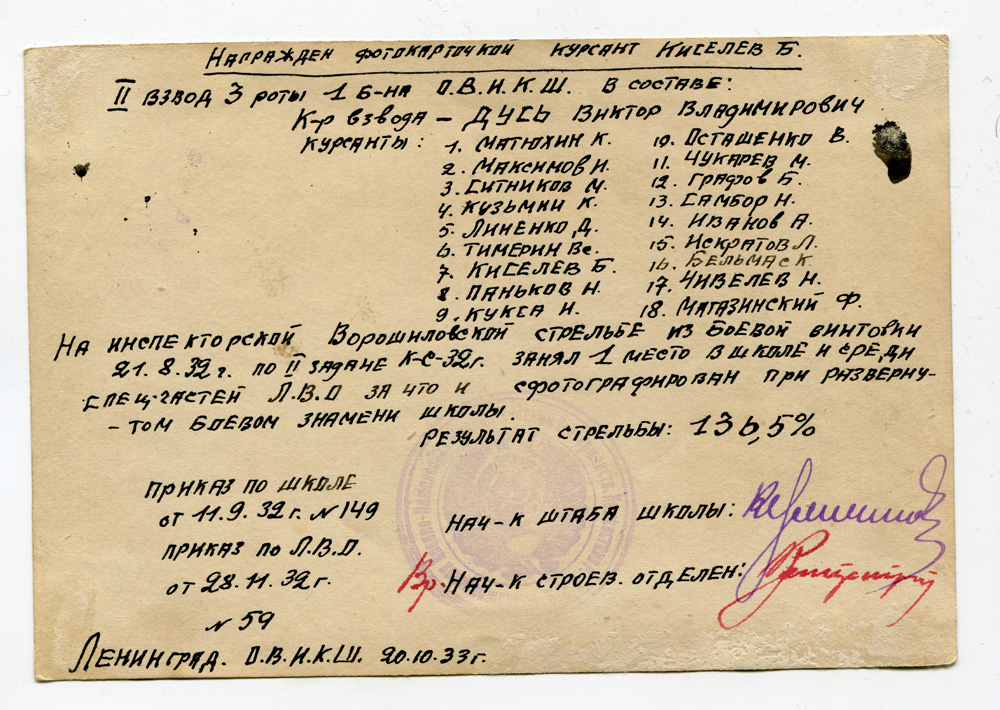 Награжден фотокарточкой курсант Киселев Б.
II взвод 3 роты 1 б-на О.В.И.К.Ш. в составе:
К-р взвода – Дусь Виктор Владимирович
Курсанты:
1. Матюхин К.
2. Максимов И.
3. Ситников М.
4. Кузьмин К.
5. Линенко Д.
6. Тимерин Вс.
7. Киселев Б.
8. Паньков Н.
9. Кукса Н.
10. Осташенко В.
11. Чукарев М.
12. Графов Б.
13. Самбор Н.
14. Иванов А.
15. Искратов Л.
16. Бельмас К.
17. Чивелев Н.
18. Магазинский Ф.
На инспекторской Ворошиловской стрельбе из боевой винтовки
21.8.32г. по II задаче К-С-32г. занял 1 место в школе и среди
спец-частей Л.В.О за что и сфотографирован при разверну-
-том боевом знамени школы.
Результат стрельбы: 136,5%
Приказ по школе
от 11.9.32г. N 149
Приказ по Л.В.О.
от 28.11.32г.
N 59
Нач-к штаба школы:
Вр. Нач-к строев. отделен:
Ленинград. О.В.И.К.Ш. 20.10.33г.